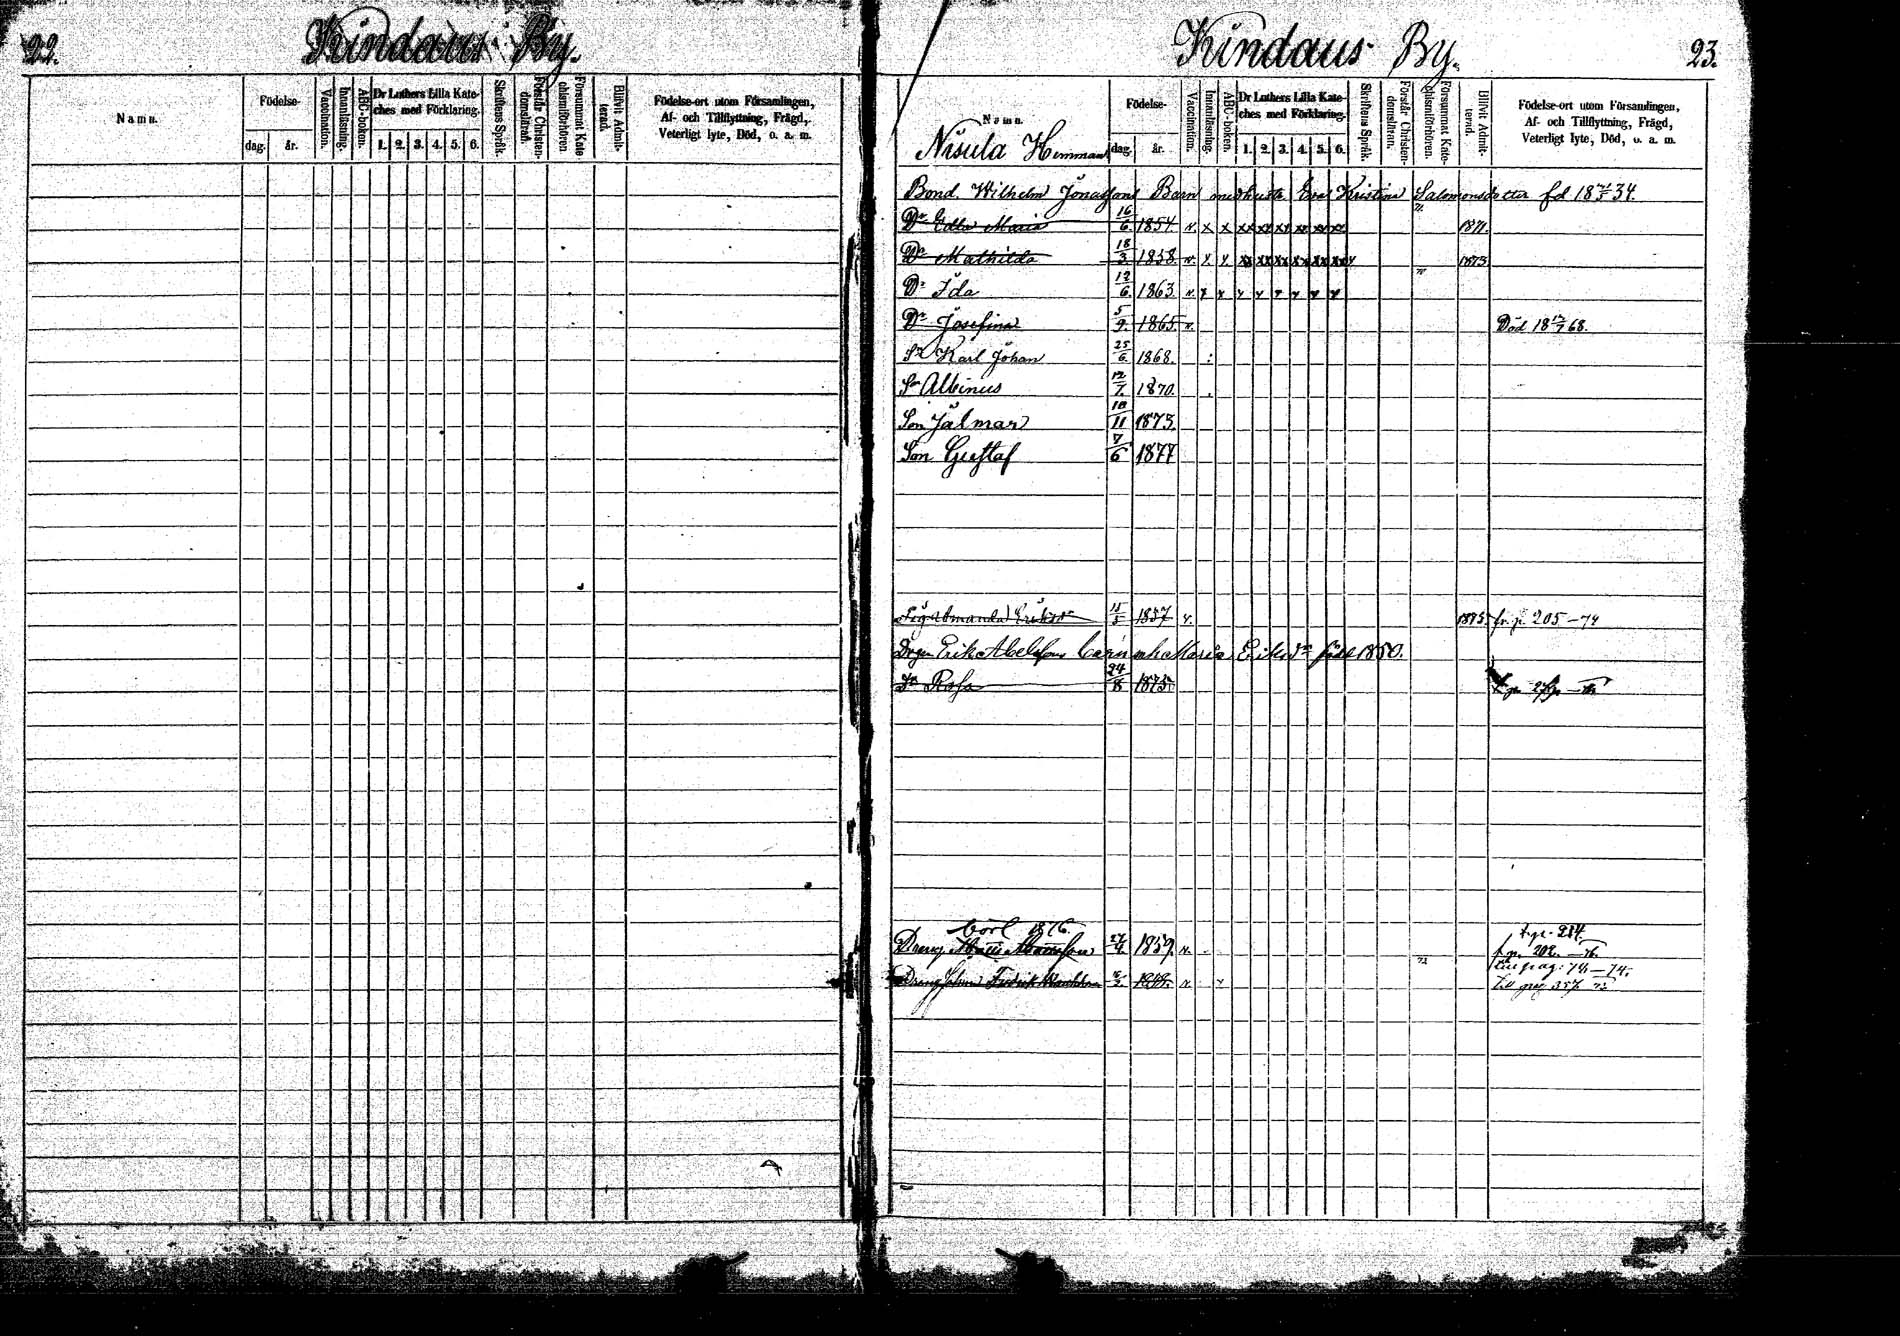 22.
Kindaus By.
Namn.
Födelse-
dag.
år.
Vaccination.
Innanläsning.
ABC-boken.
Dr Luthers Lilla Kate-
ches med Förklaring.
1. 2. 3. 4. 5. 6.
Skriftens Språk.
Förstår Christen-
domsläran.
Försummat Kate-
chismiförhören.
Blifvit Admit-
terad.
Födelse-ort utom Församlingen,
Af- och Tillflyttning, Frägd,
Veterligt lyte, Död, o. a. m.
Kindaus By.
23.
Namn.
Nisula Hemman
Födelse-
dag.
år.
Vaccination.
Innanläsning.
ABC-boken.
Dr Luthers Lilla Kate-
ches med Förklaring.
1. 2. 3. 4. 5. 6.
Skriftens Språk.
Förstår Christen-
domsläran.
Försummat Kate-
chismiförhören.
Blifvit Admit-
terad.
Födelse-ort utom Församlingen,
Af- och Tillflyttning, Frägd,
Veterligt lyte, Död, o. a. m.
Bond. Wilhelm Jonassons Barn med hustr. Eva Kristina Salomonsdotter fd 34.
Dr Edla Maria 16/6 1854. v. x x xx xx xx xx xx xx 1871.
Dr Mathilda 18/3 1858. v. x x xx xx xx xx xx xx x 1873
Dr Ida 12/6 1863. v. x x x x x x x x
Dr Josefina 5/9. 1865. v. Död 18 12/7 68.
Sn Karl Johan 25/6. 1868.
Sn Albinus 12/7. 1870.
Son Jalmar 10/11 1873.
Son Gustaf 7/6 1877
Amanda 1857 v. 1875 fr. p. 205–74
Drgn Erik Abelssons barn m h Maria Eriksdr född 1850.
Dr Rosa 24/8 1875
1876.
Dreng 1859. v.
t. p. 284.
t. p. 202.
till pag: 74–74.
Dreng Johan Fredrik v.
Till pag 357